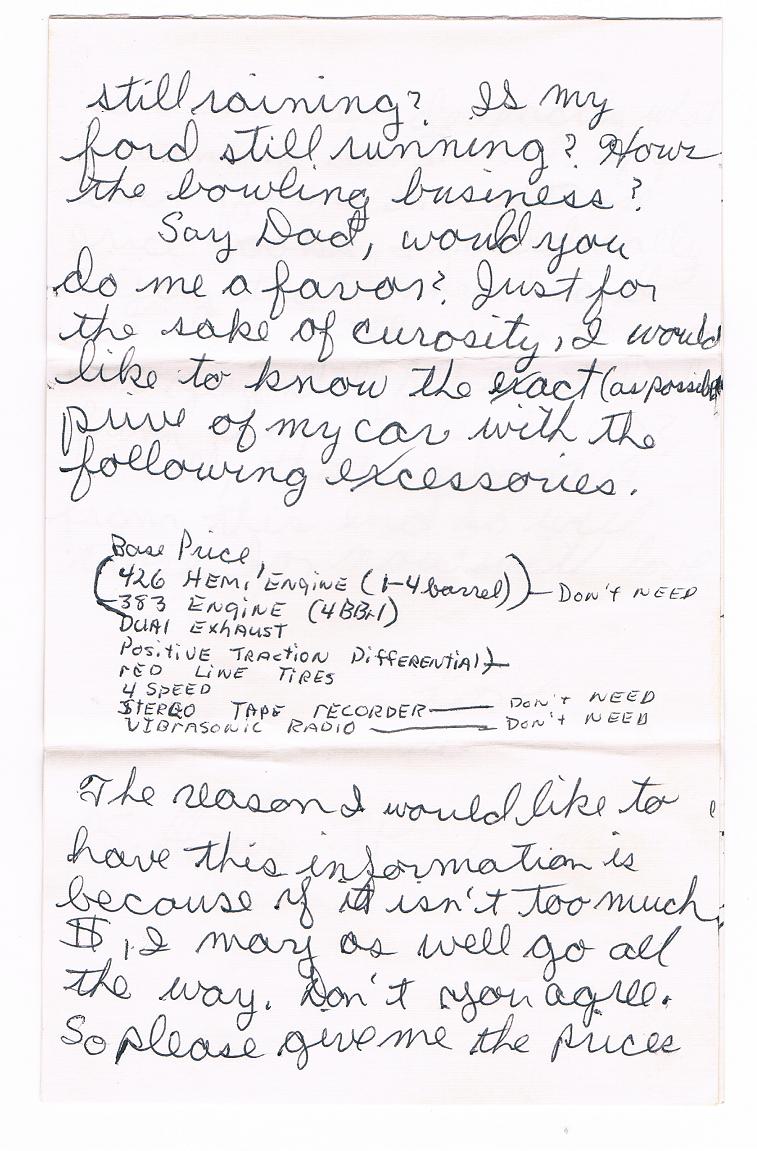 still raining? Is my
ford still running? Hows
the bowling business?
Say Dad, would you
do me a favor? Just for
the sake of curosity, I would
like to know the exact (as possible
price of my car with the
following excessories.
Base Price
426 HEMI ENGINE (1-4 barrel) — DON'T NEED
383 ENGINE (4BBrl)
DUAl ExhAUST
Positive Traction Differential
rED LINE TIRES
4 SPEED
STEREO TAPE rECORDER — DON'T NEED
VIBrASONIC RADIO — DON'T NEED
The reason I would like to
have this information is
because if it isn't too much
$, I may as well go all
the way. Don't you agree.
So please give me the prices